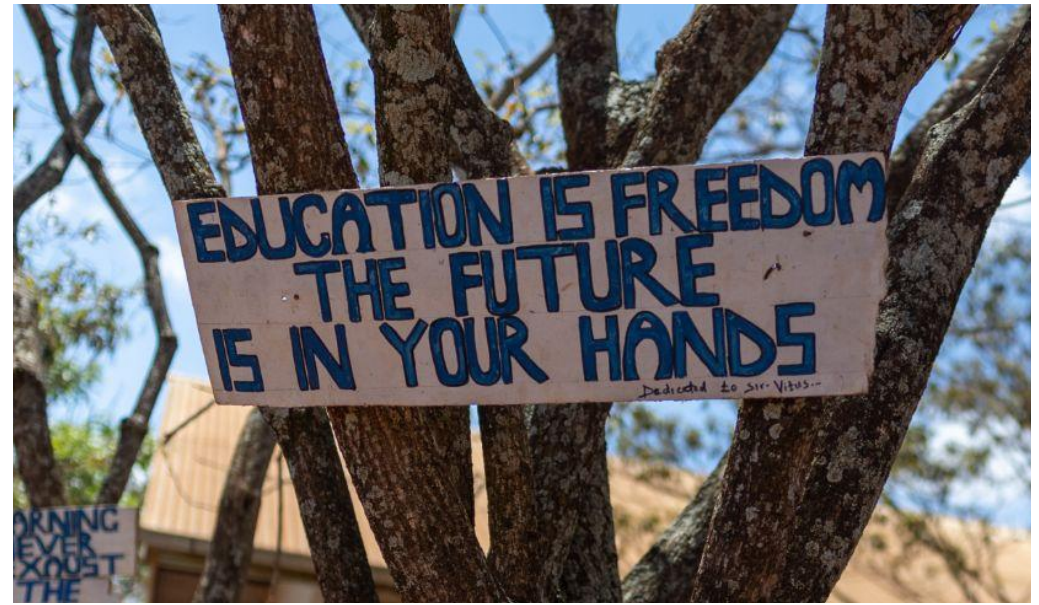 EDUCATION IS FREEDOM
THE FUTURE
IS IN YOUR HANDS
Dedicated to Sir. Vitus...
ARNING
EVER
XAUST
THE